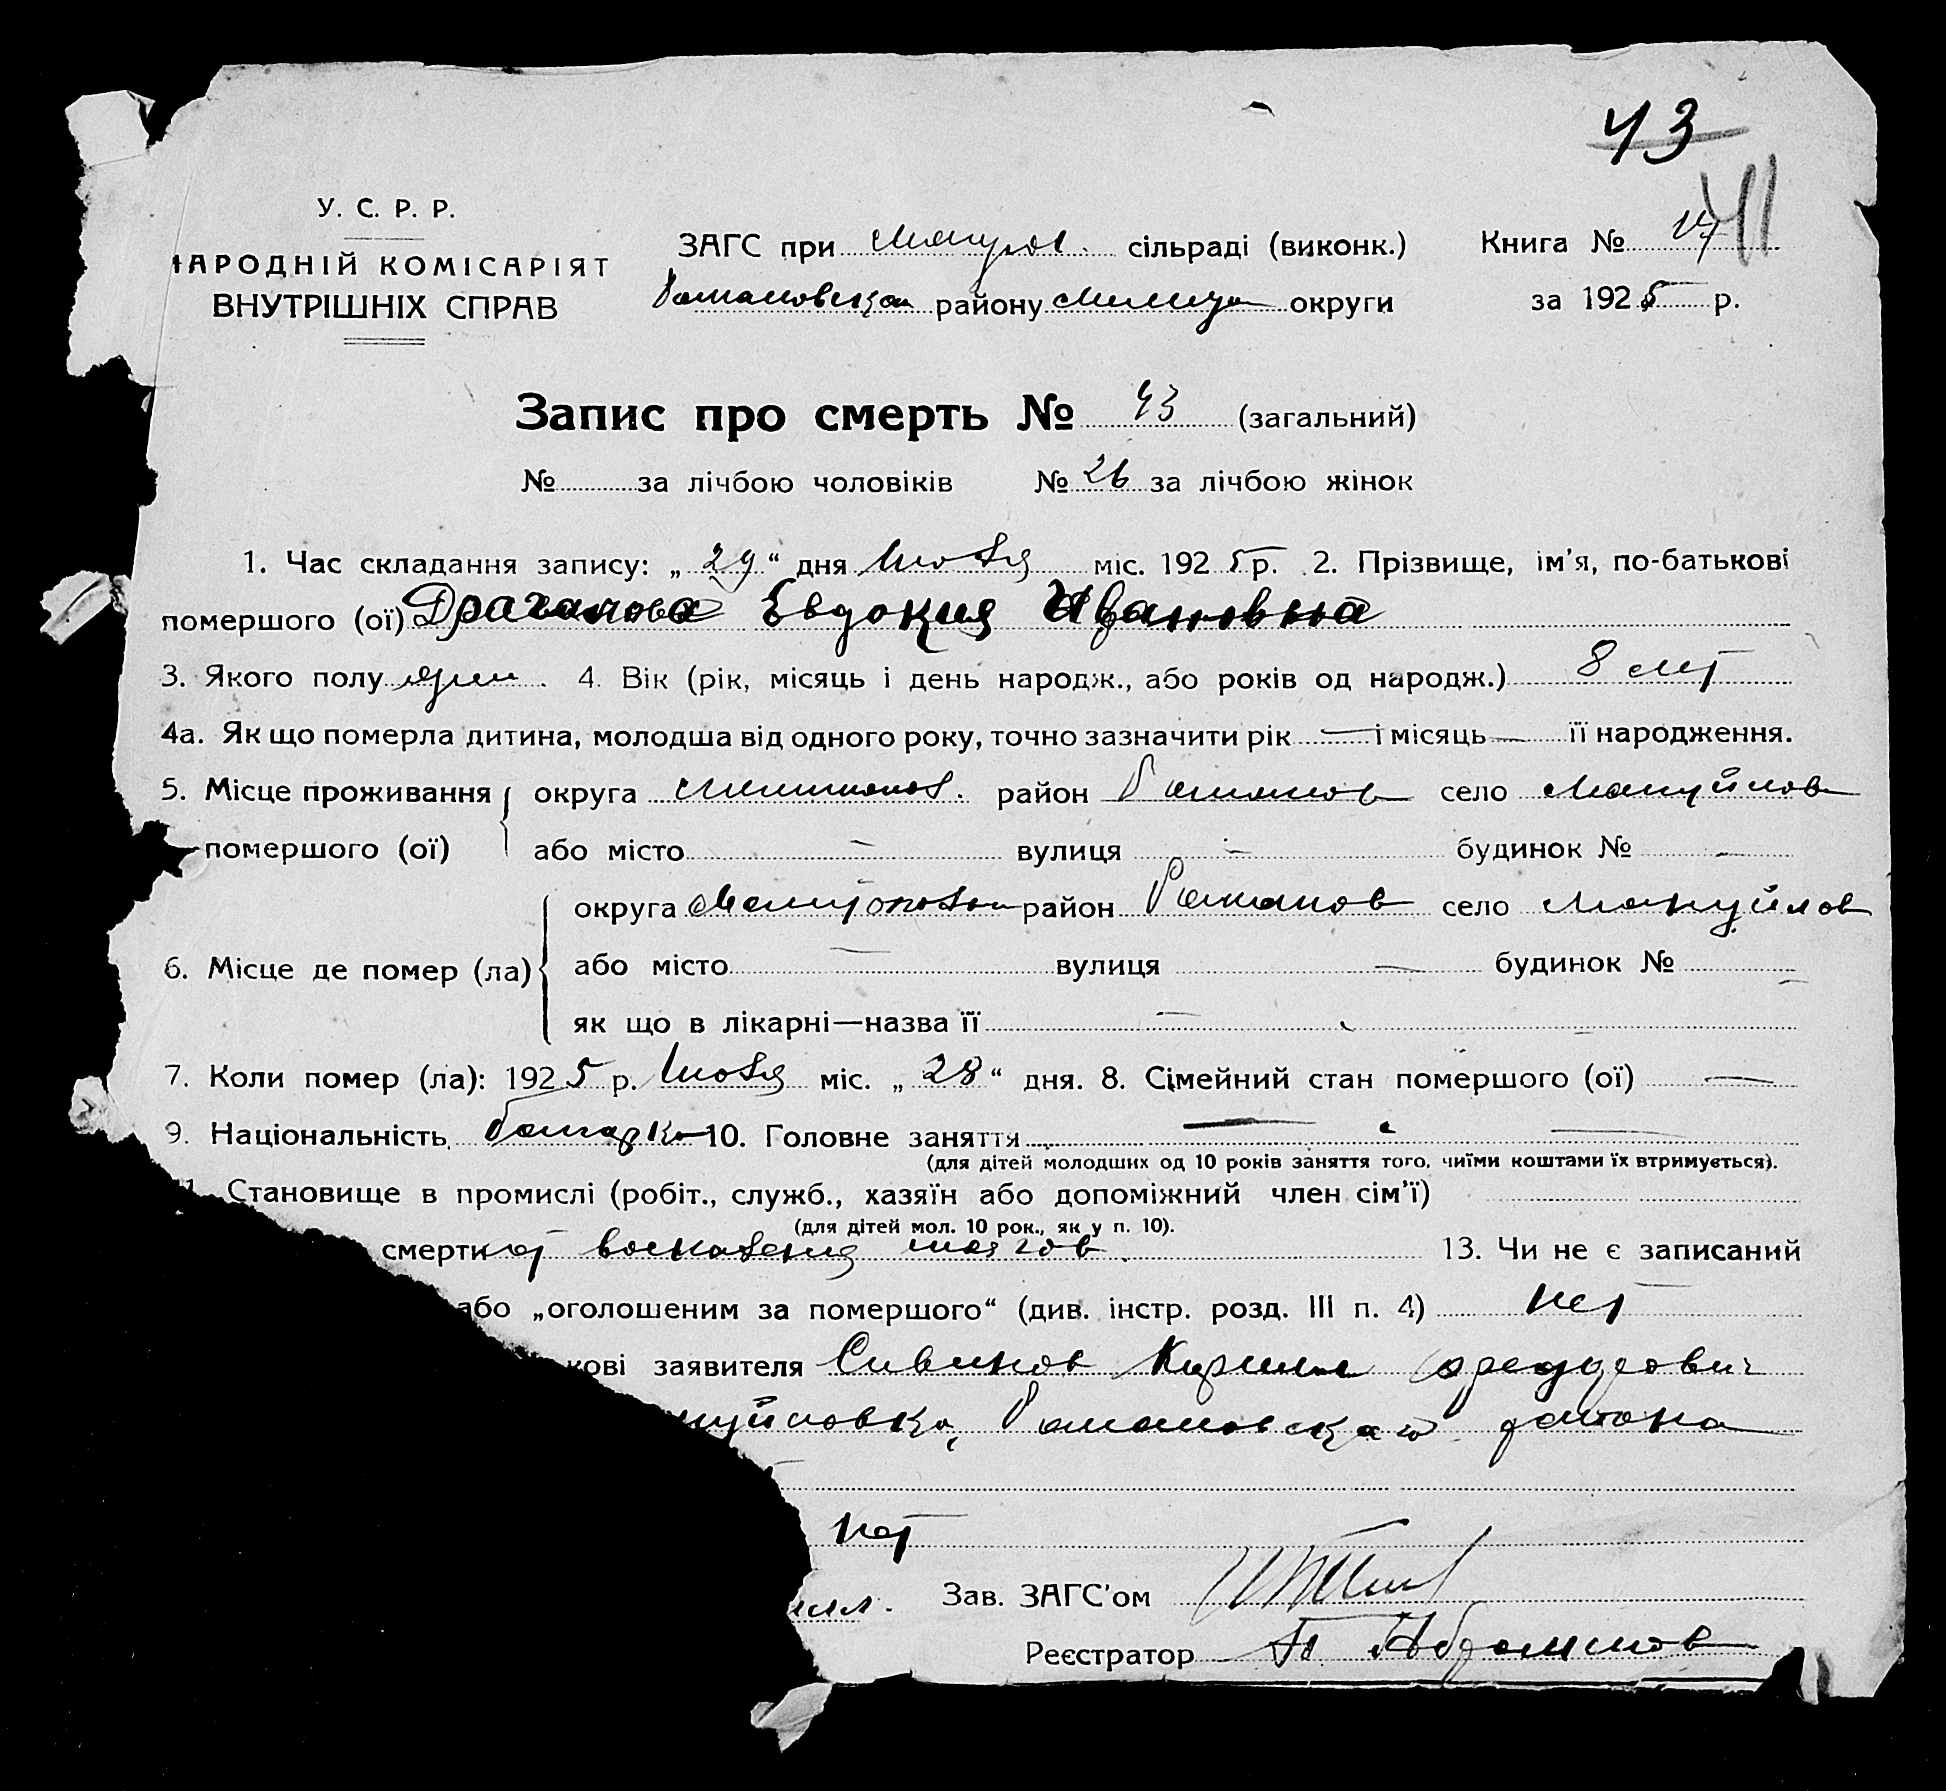 43
41
У. С. Р. Р.
НАРОДНІЙ КОМІСАРІЯТ
ВНУТРІШНІХ СПРАВ
ЗАГС при Мануйлов. сільраді (виконк.)
Романовского району округи
Книга №
за 1925 р.
Запис про смерть № 43 (загальний)
№ за лічбою чоловіків № 26 за лічбою жінок
1. Час складання запису: „ 29 “ дня міс. 1925 р. 2. Прізвище, ім’я, по-батькові
помершого (ої) Драганова Евдокия Ивановна
3. Якого полу жен. 4. Вік (рік, місяць і день народж., або років од народж.) 8 лет
4а. Як що померла дитина, молодша від одного року, точно зазначити рік — і місяць — її народження.
5. Місце проживання округа район Романов село Мануйлов
помершого (ої) або місто — вулиця — будинок № —
6. Місце де помер (ла) округа Мелитопол район Романов село Мануйлов
або місто — вулиця — будинок № —
як що в лікарні—назва її —
7. Коли помер (ла): 1925 р. міс. „ 28 “ дня. 8. Сімейний стан помершого (ої) —
9. Національність Болгарка 10. Головне заняття —
(для дітей молодших од 10 років заняття того, чиїми коштами їх втримується).
Становище в промислі (робіт., служб., хазяїн або допоміжний член сім’ї)
(для дітей мол. 10 рок., як у п. 10).
смерти от воспаления мозгов 13. Чи не є записаний
або „оголошеним за помершого“ (див. інстр. розд. III п. 4) нет
кові заявителя Кирилл Федорович
нуйловка, Романовского района
нет
Зав. ЗАГС’ом
Реєстратор